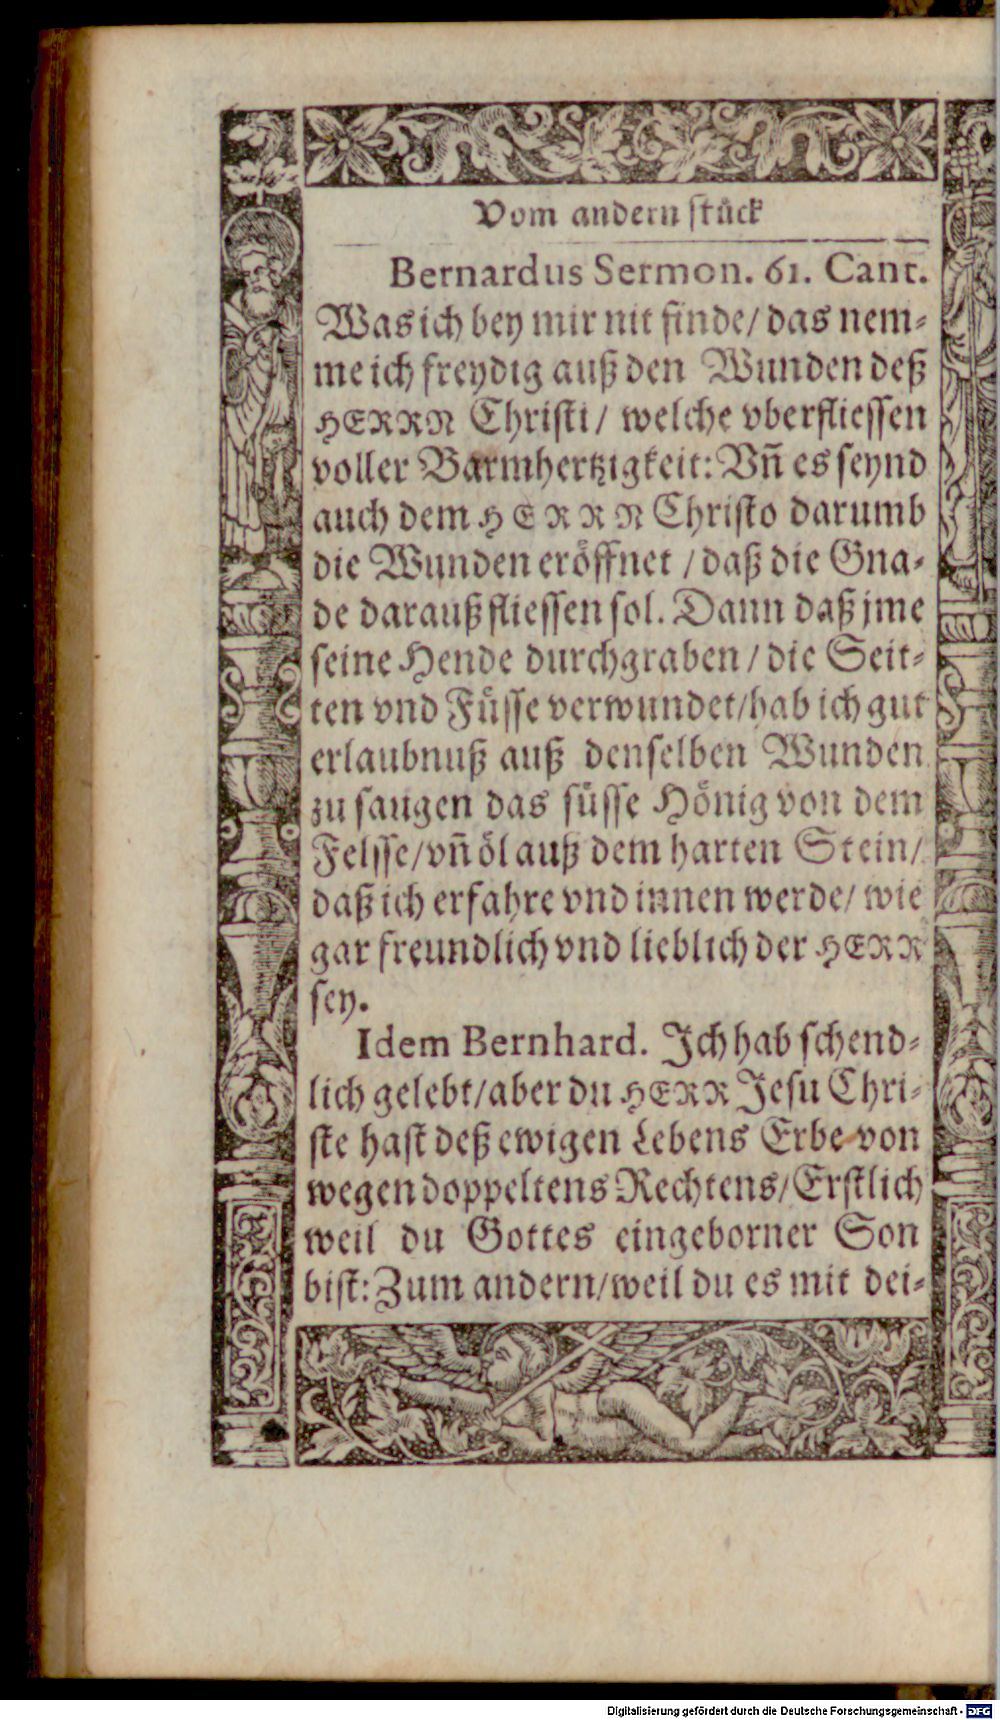 Vom andern stück
Bernardus Sermon. 61. Cant.
Was ich bey mir nit finde/ das nem-
me ich freydig auß den Wunden deß
HERRN Christi/ welche vberfliessen
voller Barmhertzigkeit: Vñ es seynd
auch dem HERRN Christo darumb
die Wunden eröffnet / daß die Gna-
de darauß fliessen sol. Dann daß jme
seine Hende durchgraben / die Seit-
ten vnd Füsse verwundet/ hab ich gut
erlaubnuß auß denselben Wunden
zu saugen das süsse Hönig von dem
Felsse/ vñ öl auß dem harten Stein/
daß ich erfahre vnd innen werde/ wie
gar freundlich vnd lieblich der HERR
sey.
Idem Bernhard. Ich hab schend-
lich gelebt/ aber du HERR Jesu Chri-
ste hast deß ewigen Lebens Erbe von
wegen doppeltens Rechtens/ Erstlich
weil du Gottes eingeborner Son
bist: Zum andern/ weil du es mit dei-
Digitalisierung gefördert durch die Deutsche Forschungsgemeinschaft - DFG